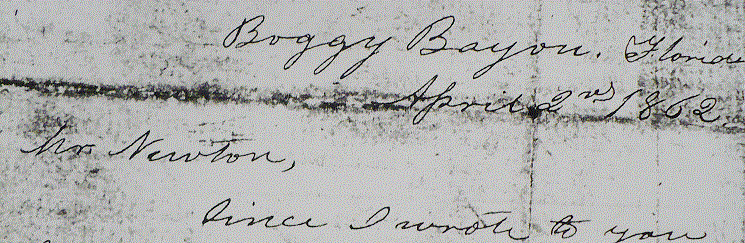 Boggy Bayou. Florida
April 2nd 1862
Mr Newton,
Since I wrote to you